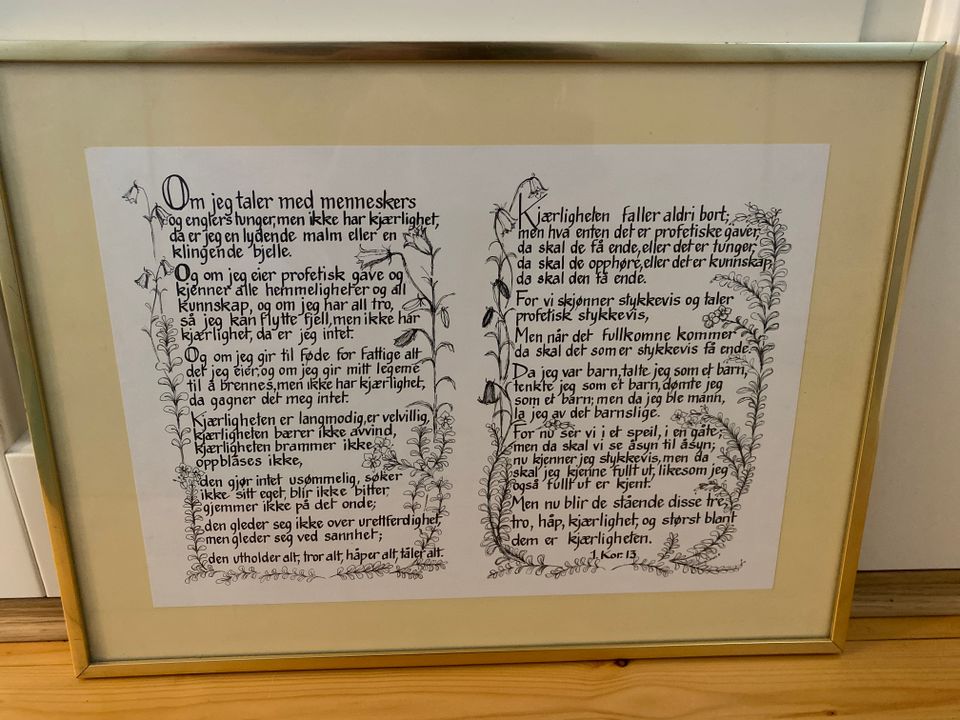 Om jeg taler med menneskers
og englers tunger, men ikke har kjærlighet,
da er jeg en lydende malm eller en
klingende bjelle.
Og om jeg eier profetisk gave og
kjenner alle hemmeligheter og all
kunnskap, og om jeg har all tro,
så jeg kan flytte fjell, men ikke har
kjærlighet, da er jeg intet.
Og om jeg gir til føde for fattige alt
det jeg eier, og om jeg gir mitt legeme
til å brennes, men ikke har kjærlighet,
da gagner det meg intet.
Kjærligheten er langmodig, er velvillig,
kjærligheten bærer ikke avvind,
kjærligheten brammer ikke
oppblåses ikke,
den gjør intet usømmelig, søker
ikke sitt eget, blir ikke bitter,
gjemmer ikke på det onde;
den gleder seg ikke over urettferdighet,
men gleder seg ved sannhet;
den utholder alt, tror alt, håper alt, tåler alt.
Kjærligheten faller aldri bort;
men hva enten det er profetiske gaver,
da skal de få ende, eller det er tunger,
da skal de opphøre, eller det er kunnskap,
da skal den få ende.
For vi skjønner stykkevis og taler
profetisk stykkevis,
Men når det fullkomne kommer
da skal det som er stykkevis få ende.
Da jeg var barn, talte jeg som et barn,
tenkte jeg som et barn, dømte jeg
som et barn; men da jeg ble mann,
la jeg av det barnslige.
For nu ser vi i et speil, i en gåte;
men da skal vi se åsyn til åsyn;
nu kjenner jeg stykkevis, men da
skal jeg kjenne fullt ut, likesom jeg
også fullt ut er kjent.
Men nu blir de stående disse tre,
tro, håp, kjærlighet, og størst blant
dem er kjærligheten.
1. Kor. 13